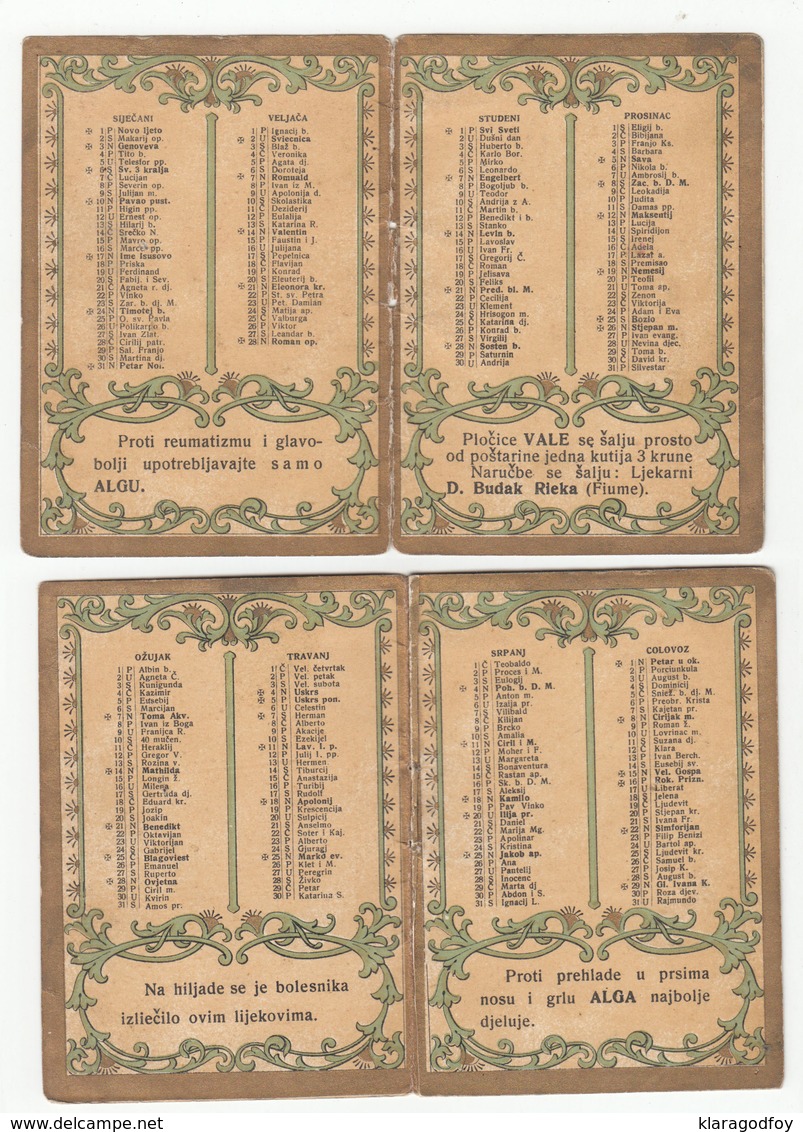 SIJEČANJ
✠ 1 P Novo ljeto
2 S Makarij op.
✠ 3 N Genoveva
4 P Tito b.
5 U Telesfor pp.
✠ 6 S Sv. 3 kralja
7 Č Lucijan
8 P Severin op.
9 S Julijan m.
✠ 10 N Pavao pust.
11 P Higin pp.
12 U Ernest op.
13 S Hilarij b.
14 Č Srečko N.
15 P Mavro op.
16 S Marcel pp.
✠ 17 N Ime Isusovo
18 P Priska
19 U Ferdinand
20 S Fabij. i Sev.
21 Č Agneta r. dj.
22 P Vinko
23 S Zar. b. dj. M.
✠ 24 N Timotej b.
25 P O. sv. Pavla
26 U Polikarpo b.
27 S Ivan Zlat.
28 Č Cirilij patr.
29 P Sal. Franjo
30 S Martina dj.
✠ 31 N Petar Nol.
VELJAČA
1 P Ignacij b.
✠ 2 U Svjecnica
3 S Blaž b.
4 Č Veronika
5 P Agata dj.
6 S Doroteja
✠ 7 N Romuald
8 P Ivan iz M.
9 U Apolonija d.
10 S Skolastika
11 Č Deziderij
12 P Eulalija
13 S Katarina R.
✠ 14 N Valentin
15 P Faustin i J.
16 U Julijana
17 S Pepelnica
18 Č Flavijan
19 P Konrad
20 S Eleuterij b.
✠ 21 N Eleonora kr.
22 P St. sv. Petra
23 U Pet. Damian
24 S Matija ap.
25 Č Valburga
26 P Viktor
27 S Leandar b.
✠ 28 N Roman op.
Proti reumatizmu i glavo-
bolji upotrebljavajte samo
ALGU.
STUDENI
✠ 1 P Svi Sveti
2 U Dušni dan
3 S Huberto b.
4 Č Karlo Bor.
5 P Mirko
6 S Leonardo
✠ 7 N Engelbert
8 P Bogoljub b.
9 U Teodor
10 S Andrija z A.
11 Č Martin b.
12 P Benedikt i b.
13 S Stanko
✠ 14 N Levin b.
15 P Lavoslav
16 U Ivan Fr.
17 S Gregorij Č.
18 Č Roman
19 P Jelisava
20 S Feliks
✠ 21 N Pred. bl. M.
22 P Cecilija
23 U Klement
24 S Hrisogon m.
25 Č Katarina dj.
26 P Konrad b.
27 S Virgilij
✠ 28 N Sosten b.
29 P Saturnin
30 U Andrija
PROSINAC
1 S Eligij b.
2 Č Bibijana
3 P Franjo Ks.
4 S Barbara
✠ 5 N Sava
6 P Nikola b.
7 U Ambrosij b.
✠ 8 S Zac. b. D. M.
9 Č Leokadija
10 P Judita
11 S Damas pp.
✠ 12 N Maksentij
13 P Lucija
14 U Spiridijon
15 S Irenej
16 Č Adela
17 P Lazar a.
18 S Premisao
✠ 19 N Nemesij
20 P Teofil
21 U Toma ap.
22 S Zenon
23 Č Viktorija
24 P Adam i Eva
✠ 25 S Bozlo
✠ 26 N Stjepan m.
27 P Ivan evang.
28 U Nevina djec.
29 S Toma b.
30 Č David kr.
31 P Silvestar
Pločice VALE se šalju prosto
od poštarine jedna kutija 3 krune
Naručbe se šalju: Ljekarni
D. Budak Rieka (Fiume).
OŽUJAK
1 P Albin b.
2 U Agneta Č.
3 S Kunigunda
4 Č Kazimir
5 P Eusebij
6 S Marcijan
✠ 7 N Toma Akv.
8 P Ivan iz Boga
9 U Franjica R.
10 S 40 mučen.
11 Č Heraklij
12 P Gregor V.
13 S Rozina v.
✠ 14 N Mathilda
15 P Longin ž.
16 U Milena
17 S Gertruda dj.
18 Č Eduard kr.
19 P Jozip
20 S Joakin
✠ 21 N Benedikt
22 P Oktavijan
23 U Viktorijan
24 S Gabrijel
✠ 25 Č Blagoviest
26 P Emanuel
27 S Ruperto
✠ 28 N Ovjetna
29 P Ciril m.
30 U Kvirin
31 S Amos pr.
TRAVANJ
1 Č Vel. četvrtak
2 P Vel. petak
3 S Vel. subota
✠ 4 N Uskrs
✠ 5 P Uskrs pon.
6 U Celestin
✠ 7 S Herman
8 Č Alberto
9 P Akacije
10 S Ezekijel
✠ 11 N Lav. I. p.
12 P Julij I. pp.
13 U Hermen
14 S Tiburcij
15 Č Anastazija
16 P Turibij
17 S Rudolf
✠ 18 N Apolonij
19 P Krescencija
20 U Sulpicij
21 S Anselmo
22 Č Soter i Kaj.
23 P Alberto
24 S Gjuragj
✠ 25 N Marko ev.
26 P Klet i M.
27 U Peregrin
28 S Živko
29 Č Petar
30 P Katarina S.
Na hiljade se je bolesnika
izliečilo ovim lijekovima.
SRPANJ
1 Č Teobaldo
2 P Proces i M.
3 S Eulogij
✠ 4 N Poh. b. D. M.
5 P Anton m.
6 U Izaija pr.
7 S Vilibald
8 Č Kilijan
9 P Brcko
10 S Amalia
✠ 11 N Ciril i M.
12 P Moher i F.
13 U Margareta
14 S Bonaventura
15 Č Rastan ap.
16 P Sk. b. D. M.
17 S Aleksij
✠ 18 N Kamilo
19 P Pav Vinko
✠ 20 U Ilija pr.
21 S Daniel
22 Č Marija Mg.
23 P Apolinar
24 S Kristina
✠ 25 N Jakob ap.
26 P Ana
27 U Pantelij
28 S Inocenc
29 Č Marta dj
30 P Abdon i S.
31 S Ignacij L.
COLOVOZ
✠ 1 N Petar u ok.
2 P Porciunkula
3 U August b.
4 S Dominicij
5 Č Sniež. b. dj. M.
6 P Preobr. Krista
7 S Kajetan pr.
✠ 8 N Cirijak m.
9 P Roman ž.
10 U Lovrinac m.
11 S Suzana dj.
12 Č Klara
13 P Ivan Berch.
14 S Eusebij sv.
✠ 15 N Vel. Gospa
✠ 16 P Rok. Prizn.
17 U Liberat
18 S Jelena
19 Č Ljudevit
20 P Stjepan kr.
21 S Ivana Fr.
✠ 22 N Simforijan
23 P Filip Benizi
24 U Bartol ap.
25 S Ljudevit kr.
26 Č Samuel b.
27 P Josip K.
28 S August b.
✠ 29 N Gl. Ivana K.
30 P Roza djev.
31 U Rajmundo
Proti prehlade u prsima
nosu i grlu ALGA najbolje
djeluje.
klaragodfoy